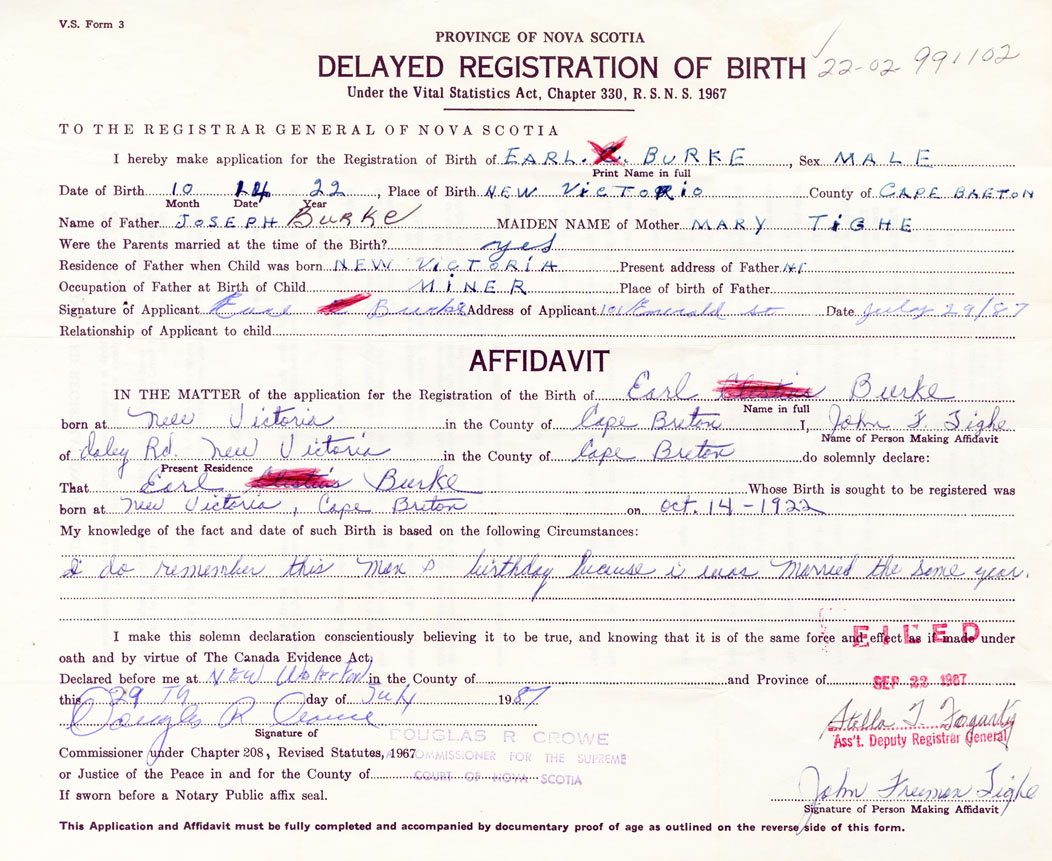 V.S. Form 3
PROVINCE OF NOVA SCOTIA
DELAYED REGISTRATION OF BIRTH 22-02 991102
Under the Vital Statistics Act, Chapter 330, R.S.N.S. 1967
TO THE REGISTRAR GENERAL OF NOVA SCOTIA
I hereby make application for the Registration of Birth of EARL. BURKE, Sex MALE
Print Name in full
Date of Birth 10 14 22, Place of Birth NEW VICTORIO County of CAPE BRETON
Month Date Year
Name of Father JOSEPH BURKE MAIDEN NAME of Mother MARY TiGHE
Were the Parents married at the time of the Birth? yes
Residence of Father when Child was born NEW VICTORIA Present address of Father
Occupation of Father at Birth of Child MiNER Place of birth of Father
Signature of Applicant Earl Burke Address of Applicant 101 Emerald st Date July 29/87
Relationship of Applicant to child
AFFIDAVIT
IN THE MATTER of the application for the Registration of the Birth of Earl Burke
Name in full
born at New Victoria in the County of Cape Breton I, John F. Tighe
Name of Person Making Affidavit
of Daley Rd. New Victoria in the County of Cape Breton do solemnly declare:
Present Residence
That Earl Burke Whose Birth is sought to be registered was
born at New Victoria, Cape Briton on oct. 14 - 1922
My knowledge of the fact and date of such Birth is based on the following Circumstances:
I do remember this Man s birthday because i was Married the same year.
I make this solemn declaration conscientiously believing it to be true, and knowing that it is of the same force and effect as if made under
FILED
oath and by virtue of The Canada Evidence Act,
Declared before me at NEW Waterford in the County of and Province of
SEP 22 1987
this 29 TH day of July 1987
Douglas R Crowe
Stella T. Fogarty
Signature of
DOUGLAS R CROWE
Ass't. Deputy Registrar General
Commissioner under Chapter 208, Revised Statutes, 1967
A COMMISSIONER FOR THE SUPREME
or Justice of the Peace in and for the County of
COURT OF NOVA SCOTIA
John Freeman Tighe
If sworn before a Notary Public affix seal.
Signature of Person Making Affidavit
This Application and Affidavit must be fully completed and accompanied by documentary proof of age as outlined on the reverse side of this form.